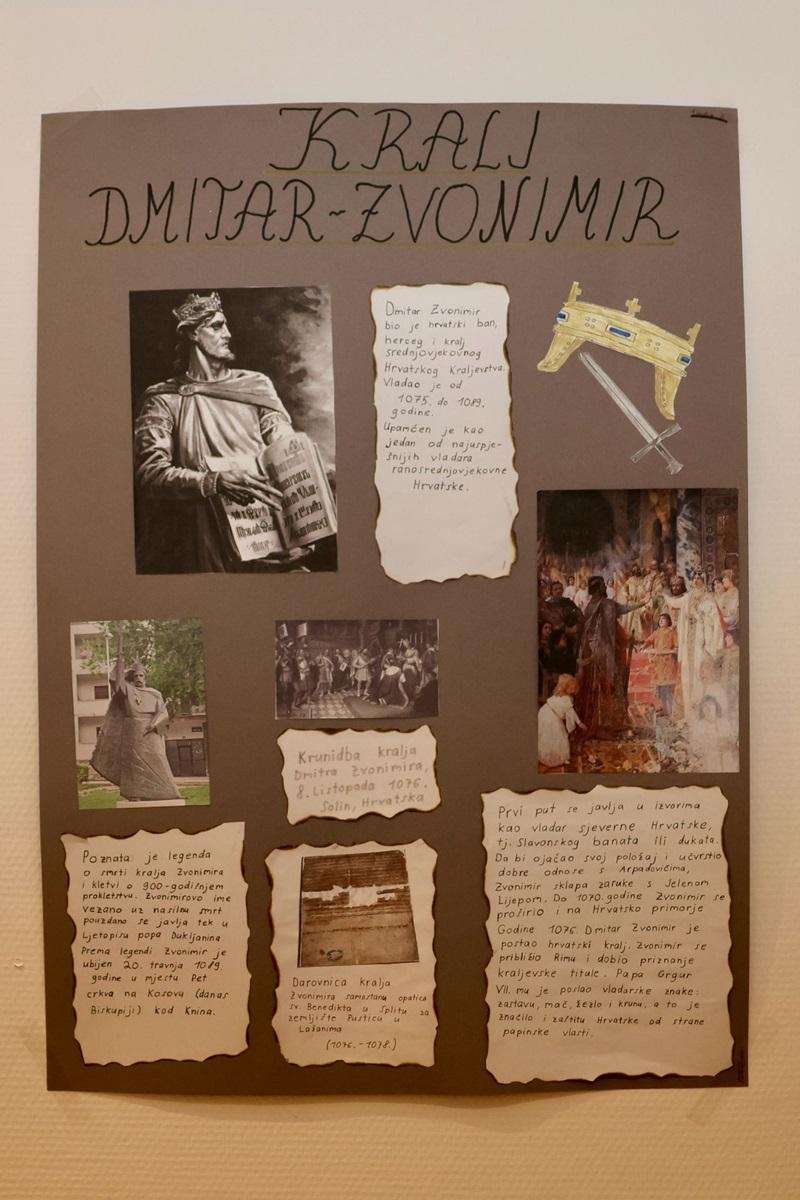 KRALJ
DMITAR-ZVONIMIR
Dmitar Zvonimir
bio je hrvatski ban,
herceg i kralj
srednjovjekovnog
Hrvatskog Kraljevstva.
Vladao je od
1075. do 1089.
godine.
Upamćen je kao
jedan od najuspje-
šnijih vladara
ranosrednjovjekovne
Hrvatske.
Krunidba kralja
Dmitra Zvonimira,
8. Listopada 1076.
Solin, Hrvatska
Poznata je legenda
o smrti kralja Zvonimira
i kletvi o 900-godišnjem
prokletstvu. Zvonimirovo ime
vezano uz nasilnu smrt
pouzdano se javlja tek u
Ljetopisu popa Dukljanina
Prema legendi Zvonimir je
ubijen 20. travnja 1089.
godine u mjestu Pet
crkva na Kosovu (danas
Biskupiji) kod Knina.
Darovnica kralja
Zvonimira samostanu opatica
sv. Benedikta u Splitu za
zemljište Pustica u
Lažanima
(1076.-1078.)
Prvi put se javlja u izvorima
kao vladar sjeverne Hrvatske,
tj. Slavonskog banata ili dukata.
Da bi ojačao svoj položaj i učvrstio
dobre odnose s Arpadovićima,
Zvonimir sklapa zaruke s Jelenom
Lijepom. Do 1070. godine Zvonimir se
proširio i na Hrvatsko primorje
Godine 1076. Dmitar Zvonimir je
postao hrvatski kralj. Zvonimir se
približio Rimu i dobio priznanje
kraljevske titule. Papa Grgur
VII. mu je poslao vladarske znake:
zastavu, mač, žezlo i krunu, a to je
značilo i zaštitu Hrvatske od strane
papinske vlasti.